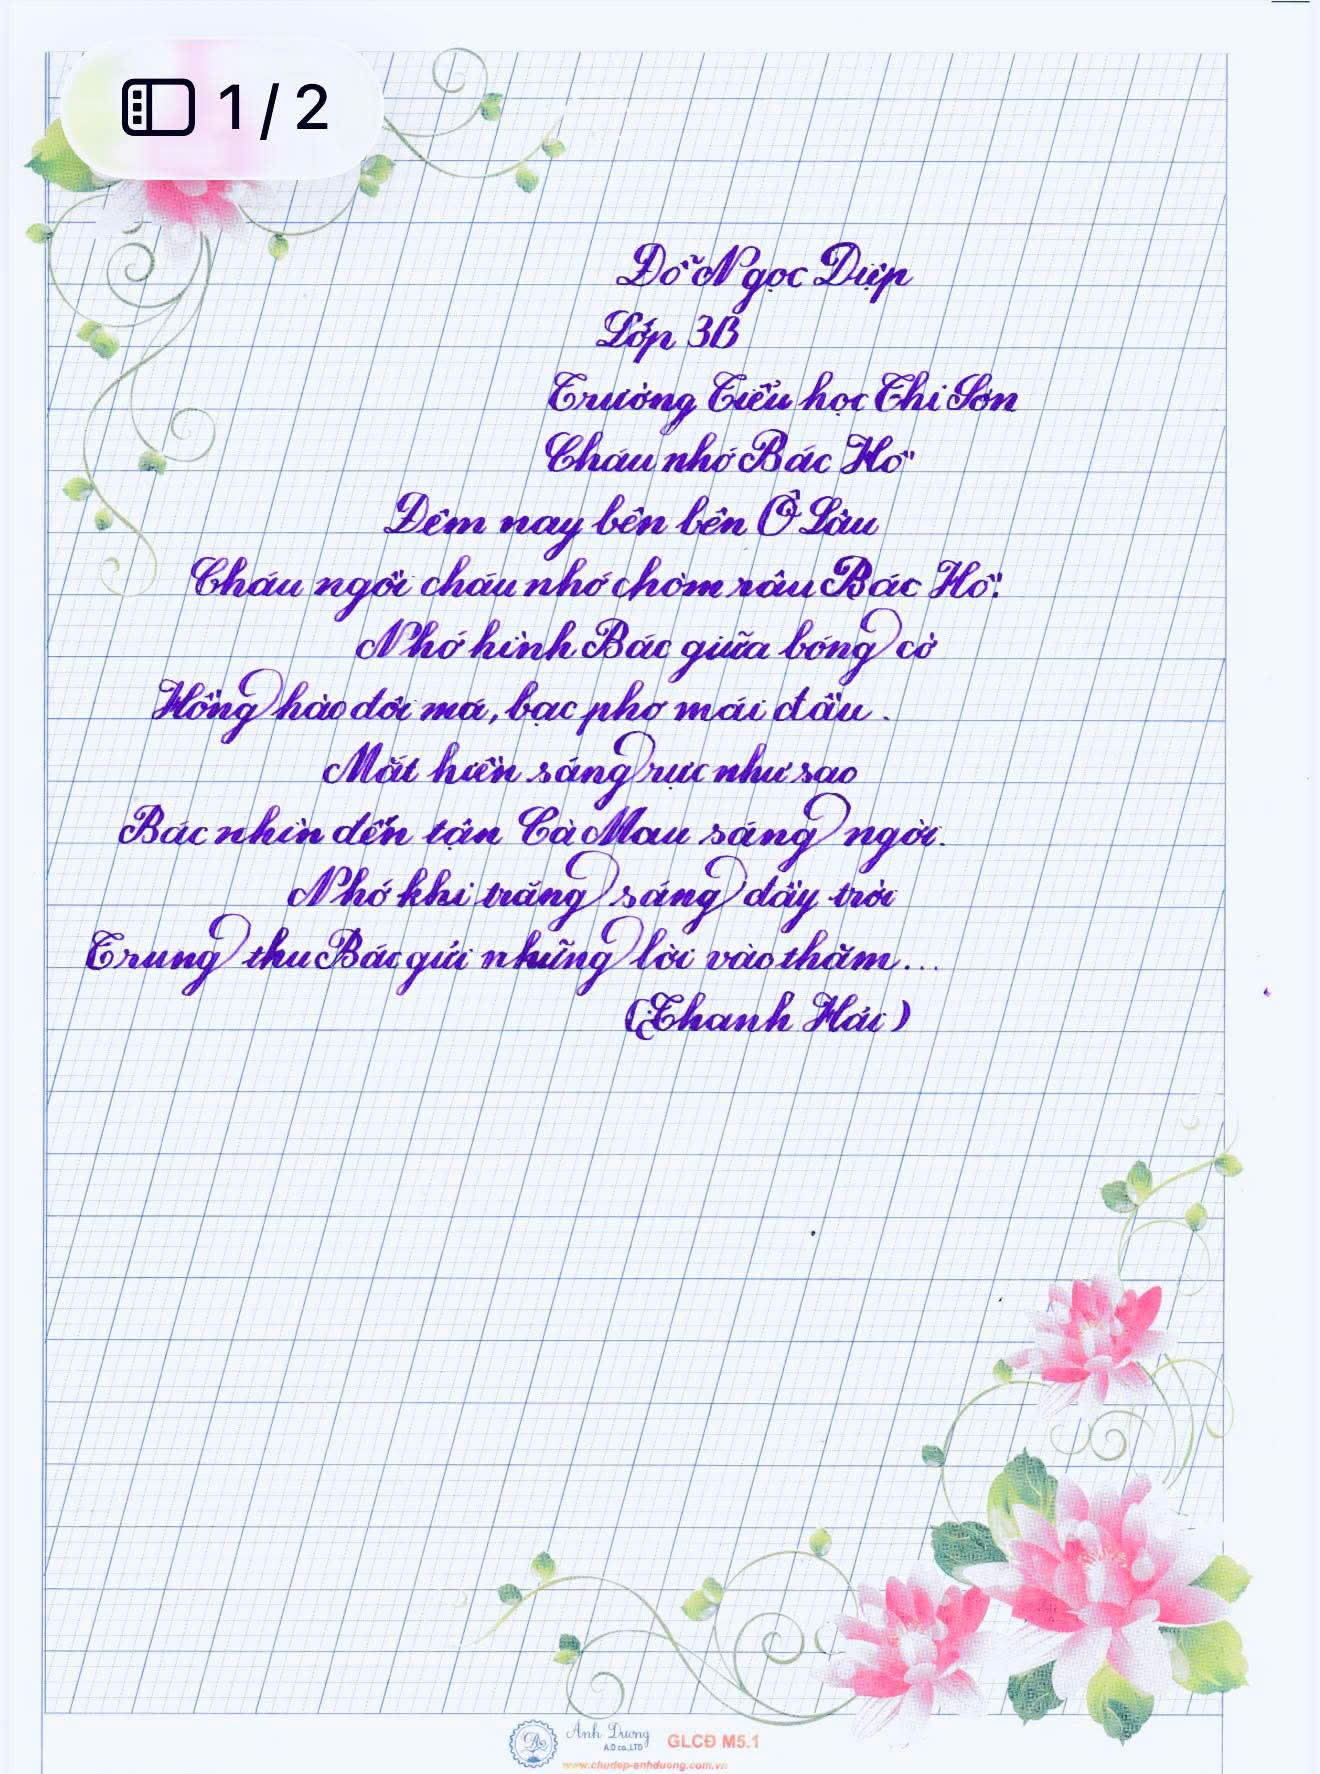 1 / 2
Đỗ Ngọc Diệp
Lớp 3B
Trường Tiểu học Thi Sơn
Cháu nhớ Bác Hồ
Đêm nay bên bến Ô Lâu
Cháu ngồi cháu nhớ chòm râu Bác Hồ.
Nhớ hình Bác giữa bóng cờ
Hồng hào đôi má, bạc phơ mái đầu.
Mắt hiền sáng rực như sao
Bác nhìn đến tận Cà Mau sáng ngời.
Nhớ khi trăng sáng đầy trời
Trung thu Bác gửi những lời vào thăm...
(Thanh Hải)
Ánh Dương
A.D co.,LTD
GLCĐ M5.1
www.chudep-anhduong.com.vn